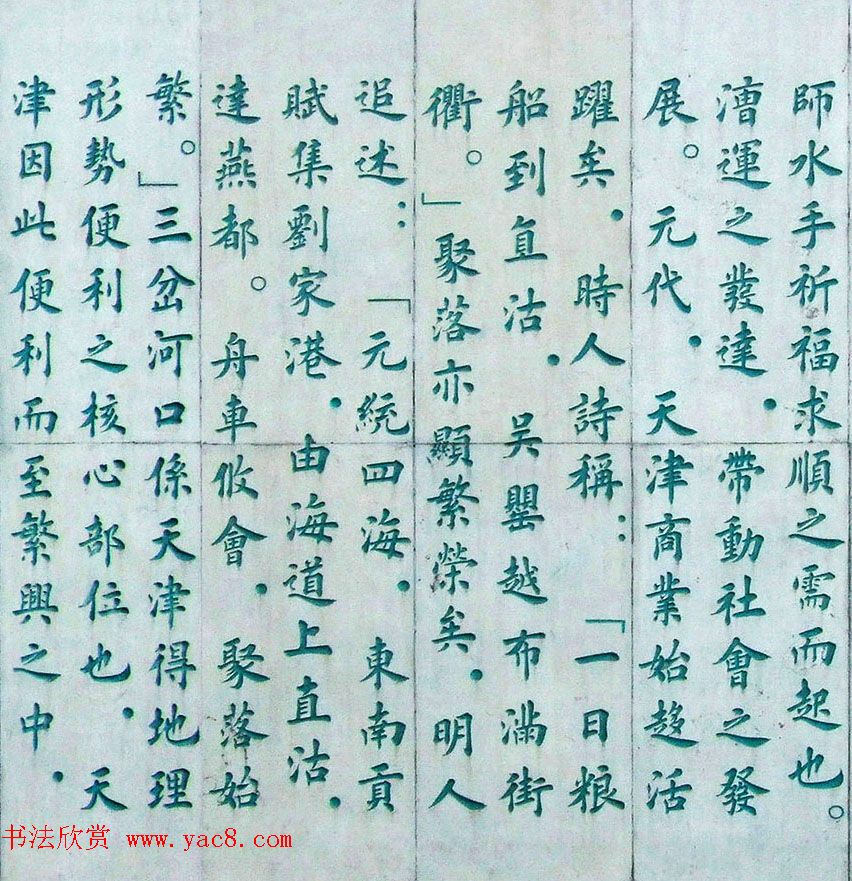 師水手祈福求順之需而起也。
漕運之發達，帶動社會之發
展。元代，天津商業始趨活
躍矣，時人詩稱：「一日粮
船到直沽，吴罌越布滿街
衢。」聚落亦顯繁榮矣，明人
追述：「元統四海，東南貢
賦集劉家港，由海道上直沽，
達燕都。舟車攸會，聚落始
繁。」三岔河口係天津得地理
形勢便利之核心部位也，天
津因此便利而至繁興之中，
书法欣赏 www.yac8.com